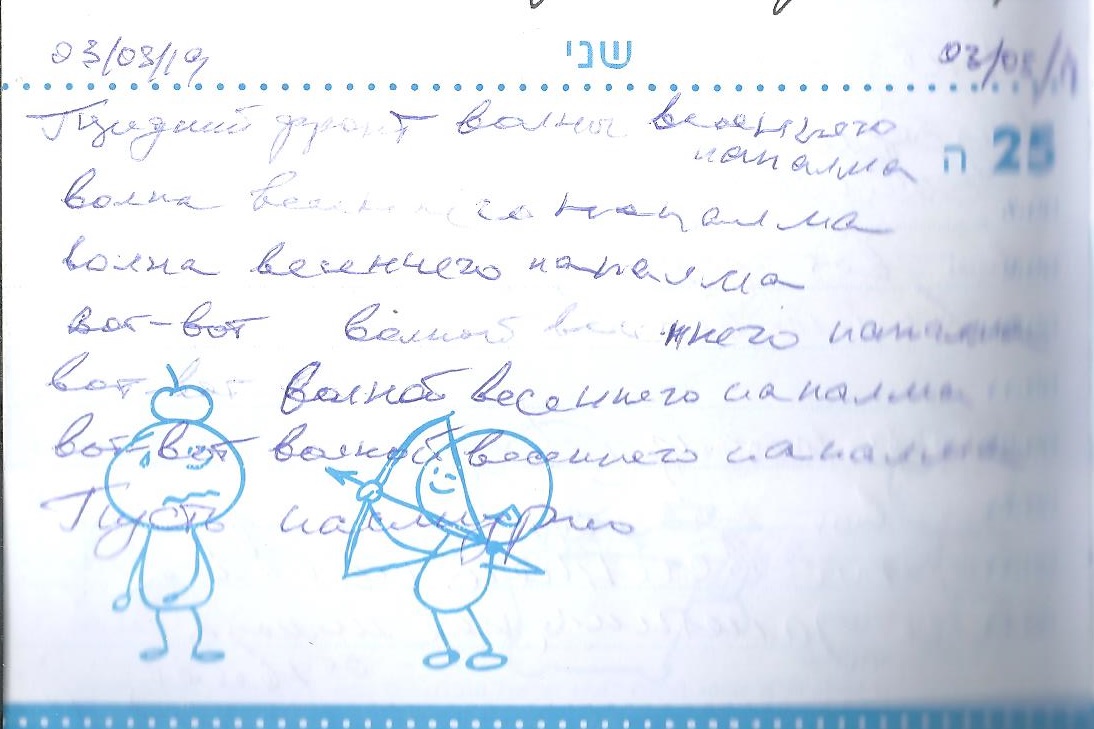 03/03/19 שני 03/03/19
Придний фронт волны весеннего
напалма ה 25
волна весеннего напалма
волна весеннего напалма
вот-вот волной весеннего напалма
вот-вот волной весеннего напалма
вот-вот волной весеннего напалма
Пусть